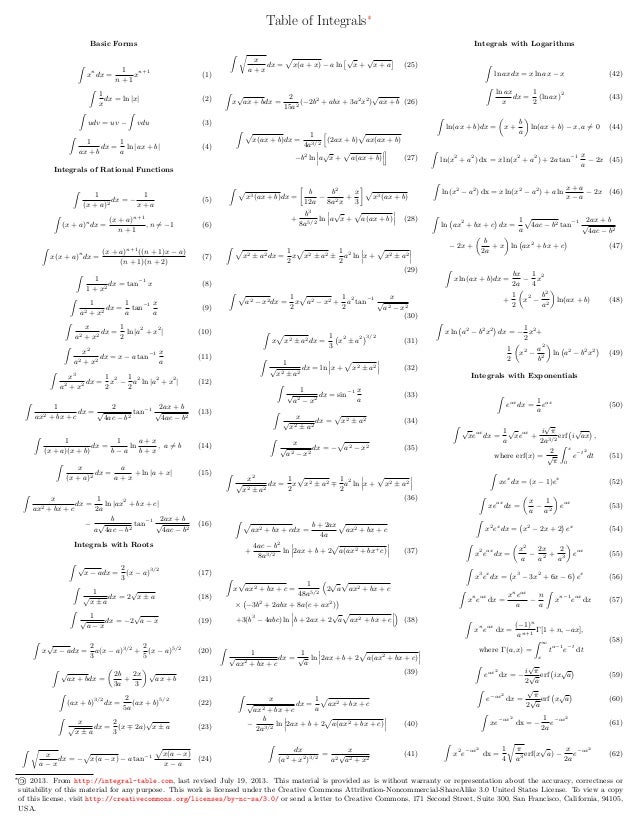 Table of Integrals*
Basic Forms
∫ xⁿ dx = 1/(n + 1) xⁿ⁺¹ (1)
∫ 1/x dx = ln |x| (2)
∫ udv = uv − ∫ vdu (3)
∫ 1/(ax + b) dx = 1/a ln |ax + b| (4)
Integrals of Rational Functions
∫ 1/(x + a)² dx = − 1/(x + a) (5)
∫ (x + a)ⁿ dx = (x + a)ⁿ⁺¹/(n + 1), n ≠ −1 (6)
∫ x(x + a)ⁿ dx = (x + a)ⁿ⁺¹((n + 1)x − a)/((n + 1)(n + 2)) (7)
∫ 1/(1 + x²) dx = tan⁻¹ x (8)
∫ 1/(a² + x²) dx = 1/a tan⁻¹ x/a (9)
∫ x/(a² + x²) dx = 1/2 ln |a² + x²| (10)
∫ x²/(a² + x²) dx = x − a tan⁻¹ x/a (11)
∫ x³/(a² + x²) dx = 1/2 x² − 1/2 a² ln |a² + x²| (12)
∫ 1/(ax² + bx + c) dx = 2/√(4ac − b²) tan⁻¹ (2ax + b)/√(4ac − b²) (13)
∫ 1/((x + a)(x + b)) dx = 1/(b − a) ln (a + x)/(b + x), a ≠ b (14)
∫ x/(x + a)² dx = a/(a + x) + ln |a + x| (15)
∫ x/(ax² + bx + c) dx = 1/2a ln |ax² + bx + c|
− b/(a√(4ac − b²)) tan⁻¹ (2ax + b)/√(4ac − b²) (16)
Integrals with Roots
∫ √(x − a) dx = 2/3 (x − a)^(3/2) (17)
∫ 1/√(x ± a) dx = 2√(x ± a) (18)
∫ 1/√(a − x) dx = −2√(a − x) (19)
∫ x√(x − a) dx = 2/3 a(x − a)^(3/2) + 2/5 (x − a)^(5/2) (20)
∫ √(ax + b) dx = (2b/3a + 2x/3) √(ax + b) (21)
∫ (ax + b)^(3/2) dx = 2/5a (ax + b)^(5/2) (22)
∫ x/√(x ± a) dx = 2/3 (x ∓ 2a)√(x ± a) (23)
∫ √(x/(a − x)) dx = −√(x(a − x)) − a tan⁻¹ √(x(a − x))/(x − a) (24)
∫ √(x/(a + x)) dx = √(x(a + x)) − a ln [√x + √(x + a)] (25)
∫ x√(ax + b) dx = 2/15a² (−2b² + abx + 3a²x²)√(ax + b) (26)
∫ √(x(ax + b)) dx = 1/4a^(3/2) [(2ax + b)√(ax(ax + b))
−b² ln |a√x + √(a(ax + b))|] (27)
∫ √(x³(ax + b)) dx = [b/12a − b²/8a²x + x/3] √(x³(ax + b))
+ b³/8a^(5/2) ln |a√x + √(a(ax + b))| (28)
∫ √(x² ± a²) dx = 1/2 x√(x² ± a²) ± 1/2 a² ln |x + √(x² ± a²)|
(29)
∫ √(a² − x²) dx = 1/2 x√(a² − x²) + 1/2 a² tan⁻¹ x/√(a² − x²)
(30)
∫ x√(x² ± a²) dx = 1/3 (x² ± a²)^(3/2) (31)
∫ 1/√(x² ± a²) dx = ln |x + √(x² ± a²)| (32)
∫ 1/√(a² − x²) dx = sin⁻¹ x/a (33)
∫ x/√(x² ± a²) dx = √(x² ± a²) (34)
∫ x/√(a² − x²) dx = −√(a² − x²) (35)
∫ x²/√(x² ± a²) dx = 1/2 x√(x² ± a²) ∓ 1/2 a² ln |x + √(x² ± a²)|
(36)
∫ √(ax² + bx + c) dx = (b + 2ax)/4a √(ax² + bx + c)
+ (4ac − b²)/8a^(3/2) ln |2ax + b + 2√(a(ax² + bx⁺c))| (37)
∫ x√(ax² + bx + c) = 1/48a^(5/2) (2√a√(ax² + bx + c)
× (−3b² + 2abx + 8a(c + ax²))
+3(b³ − 4abc) ln |b + 2ax + 2√a√(ax² + bx + c)|) (38)
∫ 1/√(ax² + bx + c) dx = 1/√a ln |2ax + b + 2√(a(ax² + bx + c))|
(39)
∫ x/√(ax² + bx + c) dx = 1/a √(ax² + bx + c)
− b/2a^(3/2) ln |2ax + b + 2√(a(ax² + bx + c))| (40)
∫ dx/(a² + x²)^(3/2) = x/(a²√(a² + x²)) (41)
Integrals with Logarithms
∫ ln ax dx = x ln ax − x (42)
∫ ln ax/x dx = 1/2 (ln ax)² (43)
∫ ln(ax + b) dx = (x + b/a) ln(ax + b) − x, a ≠ 0 (44)
∫ ln(x² + a²) dx = x ln(x² + a²) + 2a tan⁻¹ x/a − 2x (45)
∫ ln(x² − a²) dx = x ln(x² − a²) + a ln (x + a)/(x − a) − 2x (46)
∫ ln (ax² + bx + c) dx = 1/a √(4ac − b²) tan⁻¹ (2ax + b)/√(4ac − b²)
− 2x + (b/2a + x) ln (ax² + bx + c) (47)
∫ x ln(ax + b) dx = bx/2a − 1/4 x²
+ 1/2 (x² − b²/a²) ln(ax + b) (48)
∫ x ln (a² − b²x²) dx = −1/2 x²+
1/2 (x² − a²/b²) ln (a² − b²x²) (49)
Integrals with Exponentials
∫ e^(ax) dx = 1/a e^(ax) (50)
∫ √x e^(ax) dx = 1/a √x e^(ax) + i√π/2a^(3/2) erf (i√(ax)),
where erf(x) = 2/√π ∫₀ˣ e^(−t²) dt (51)
∫ xeˣ dx = (x − 1)eˣ (52)
∫ xe^(ax) dx = (x/a − 1/a²) e^(ax) (53)
∫ x²eˣ dx = (x² − 2x + 2) eˣ (54)
∫ x²e^(ax) dx = (x²/a − 2x/a² + 2/a³) e^(ax) (55)
∫ x³eˣ dx = (x³ − 3x² + 6x − 6) eˣ (56)
∫ xⁿe^(ax) dx = xⁿe^(ax)/a − n/a ∫ xⁿ⁻¹e^(ax) dx (57)
∫ xⁿe^(ax) dx = (−1)ⁿ/aⁿ⁺¹ Γ[1 + n, −ax],
where Γ(a, x) = ∫ₓ^∞ t^(a−1)e^(−t) dt
(58)
∫ e^(ax²) dx = − i√π/2√a erf (ix√a) (59)
∫ e^(−ax²) dx = √π/2√a erf (x√a) (60)
∫ xe^(−ax²) dx = − 1/2a e^(−ax²) (61)
∫ x²e^(−ax²) dx = 1/4 √(π/a³) erf(x√a) − x/2a e^(−ax²) (62)
*© 2013. From http://integral-table.com, last revised July 19, 2013. This material is provided as is without warranty or representation about the accuracy, correctness or
suitability of this material for any purpose. This work is licensed under the Creative Commons Attribution-Noncommercial-ShareAlike 3.0 United States License. To view a copy
of this license, visit http://creativecommons.org/licenses/by-nc-sa/3.0/ or send a letter to Creative Commons, 171 Second Street, Suite 300, San Francisco, California, 94105,
USA.